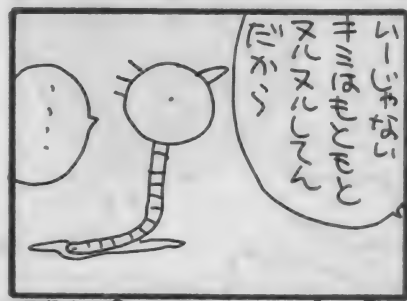 いーじゃない
キミはもともと
ヌルヌルしてん
だから
・・・・